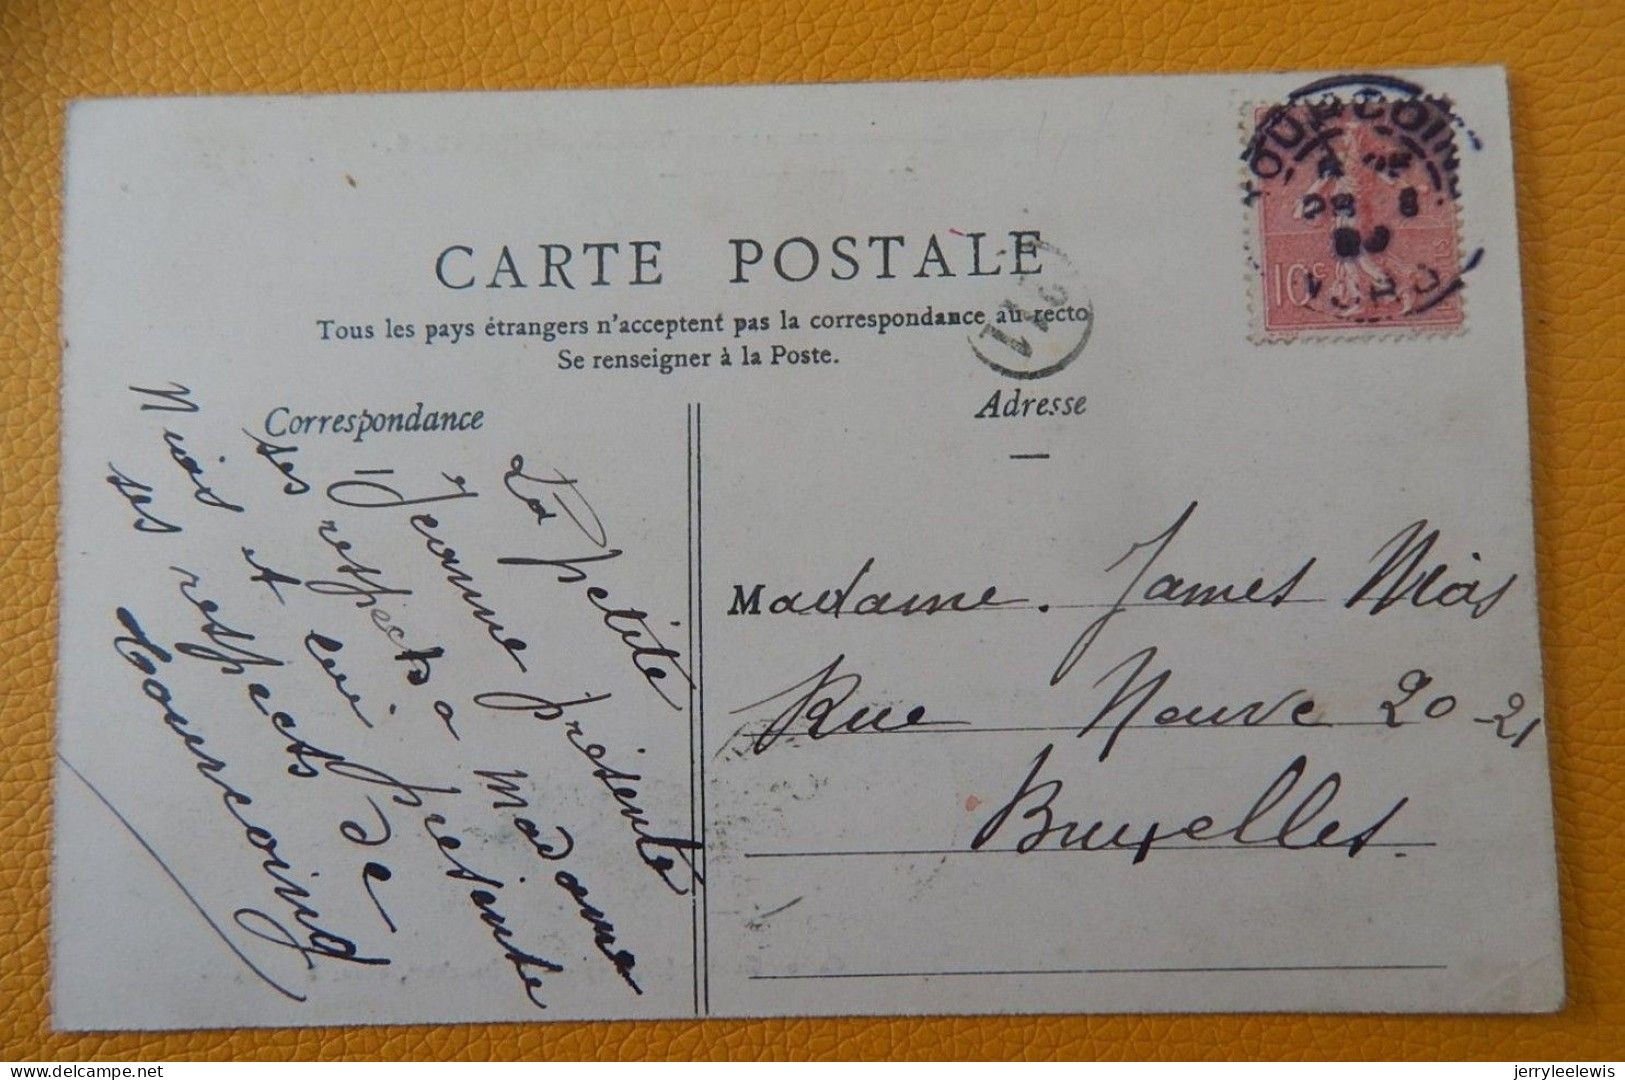 CARTE POSTALE
Tous les pays étrangers n'acceptent pas la correspondance au recto
Se renseigner à la Poste.
Correspondance
Adresse
TOURCOING
10c
La petite
Jeanne présente
ses respects a Madame
et lui présente
ses respects de
Tourcoing
Madame. James
Rue Neuve 20-21
Bruxelles.
delcampe.net
jerryleelewis